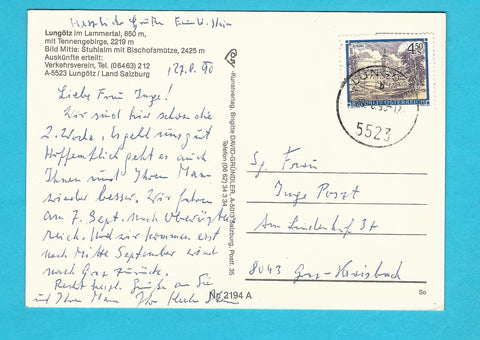 Herzliche Grüße Fam.
Lungötz im Lammertal, 850 m,
mit Tennengebirge, 2219 m
Bild Mitte: Stuhlalm mit Bischofsmütze, 2425 m
Auskünfte erteilt:
Verkehrsverein, Tel. (06463) 212
A-5523 Lungötz / Land Salzburg
27.8.90
Liebe Frau Inge!
Wir sind hier schon die
2. Woche. Es geht uns gut
Hoffentlich geht es auch
Ihnen und Ihrem Mann
wieder besser. Wir fahren
am 7. Sept. nach Oberöster
reich. Und wir kommen erst
nach Mitte September wieder
nach Graz zurück.
Recht herzl. Grüße an Sie
und Ihren Mann
Kunstverlag, Brigitte DAVID-GRÜNDLER, A-5013 Salzburg, Postf. 35
Telefon (06 62) 34 3 34
Nr. 2194 A
4.50
REPUBLIK ÖSTERREICH
5523
Sg. Frau
Inge Poszt
Am Lindenhof 3
8043 Graz-Kroisbach
So